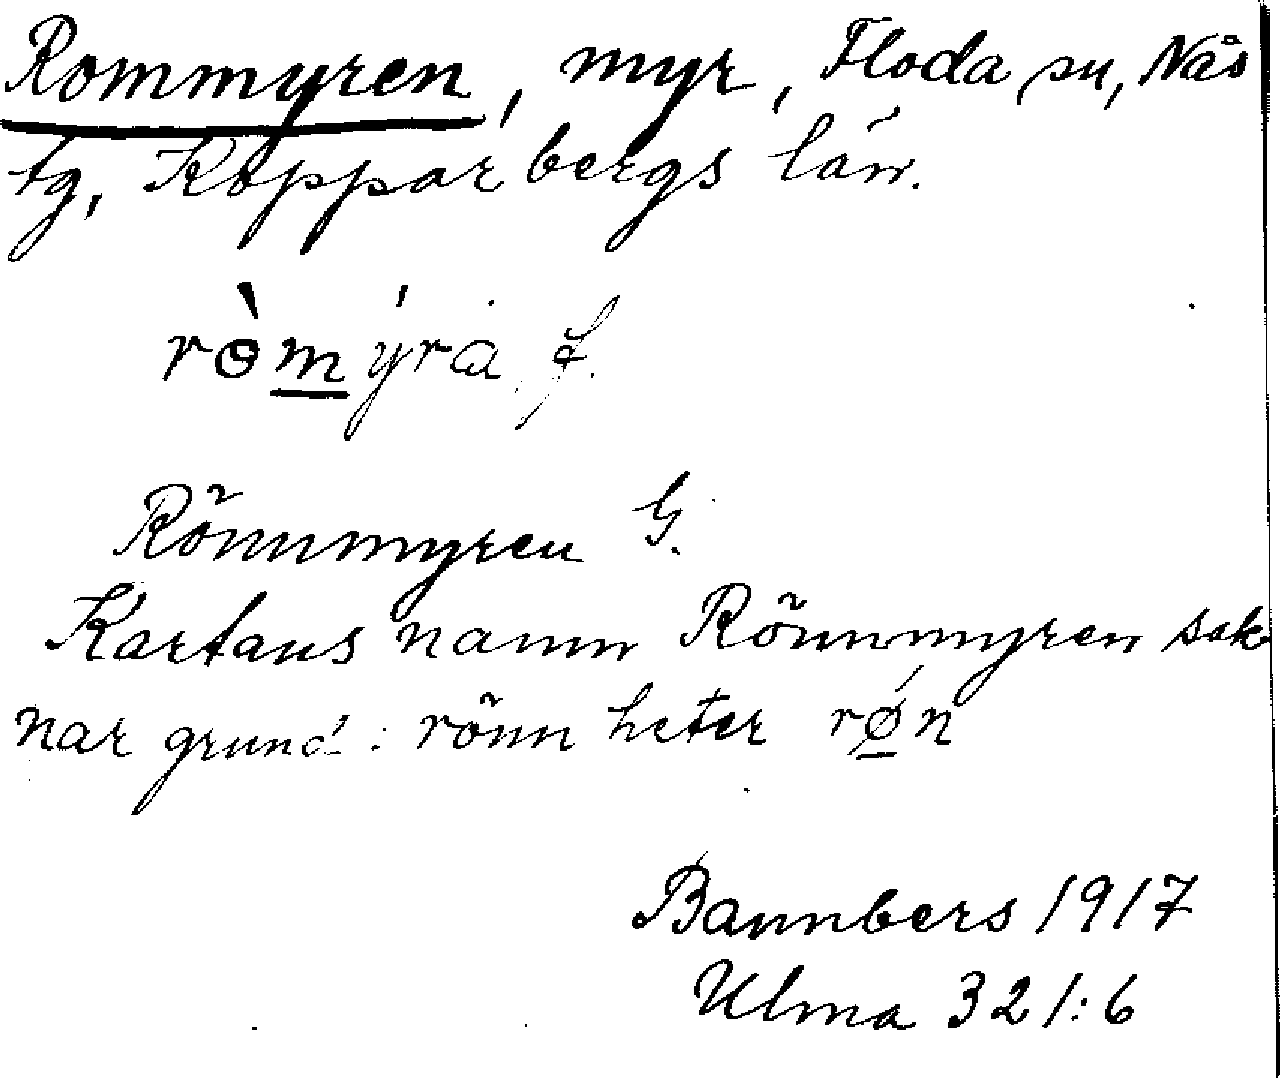 Rommyren, myr, Floda sn, Nås
tg, Kopparbergs län.
ròmýra f.
Rönnmyren G.
Kartans namn Rönnmyren sak
nar grund: rönn heter rǿn
Bannbers 1917
Ulma 321:6